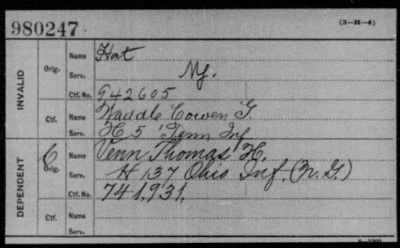 980247
(3—H—4)
INVALID
Orig.
Name Hat
Serv. Ny.
Ctf. No. 942605
Ctf.
Name Waddle Cowen G.
Serv. H 5 Tenn Inf
DEPENDENT
C
Orig.
Name Venn Thomas H.
Serv. H 137 Ohio Inf. (N. G.)
Ctf. No. 741,931.
Ctf.
Name
Serv.